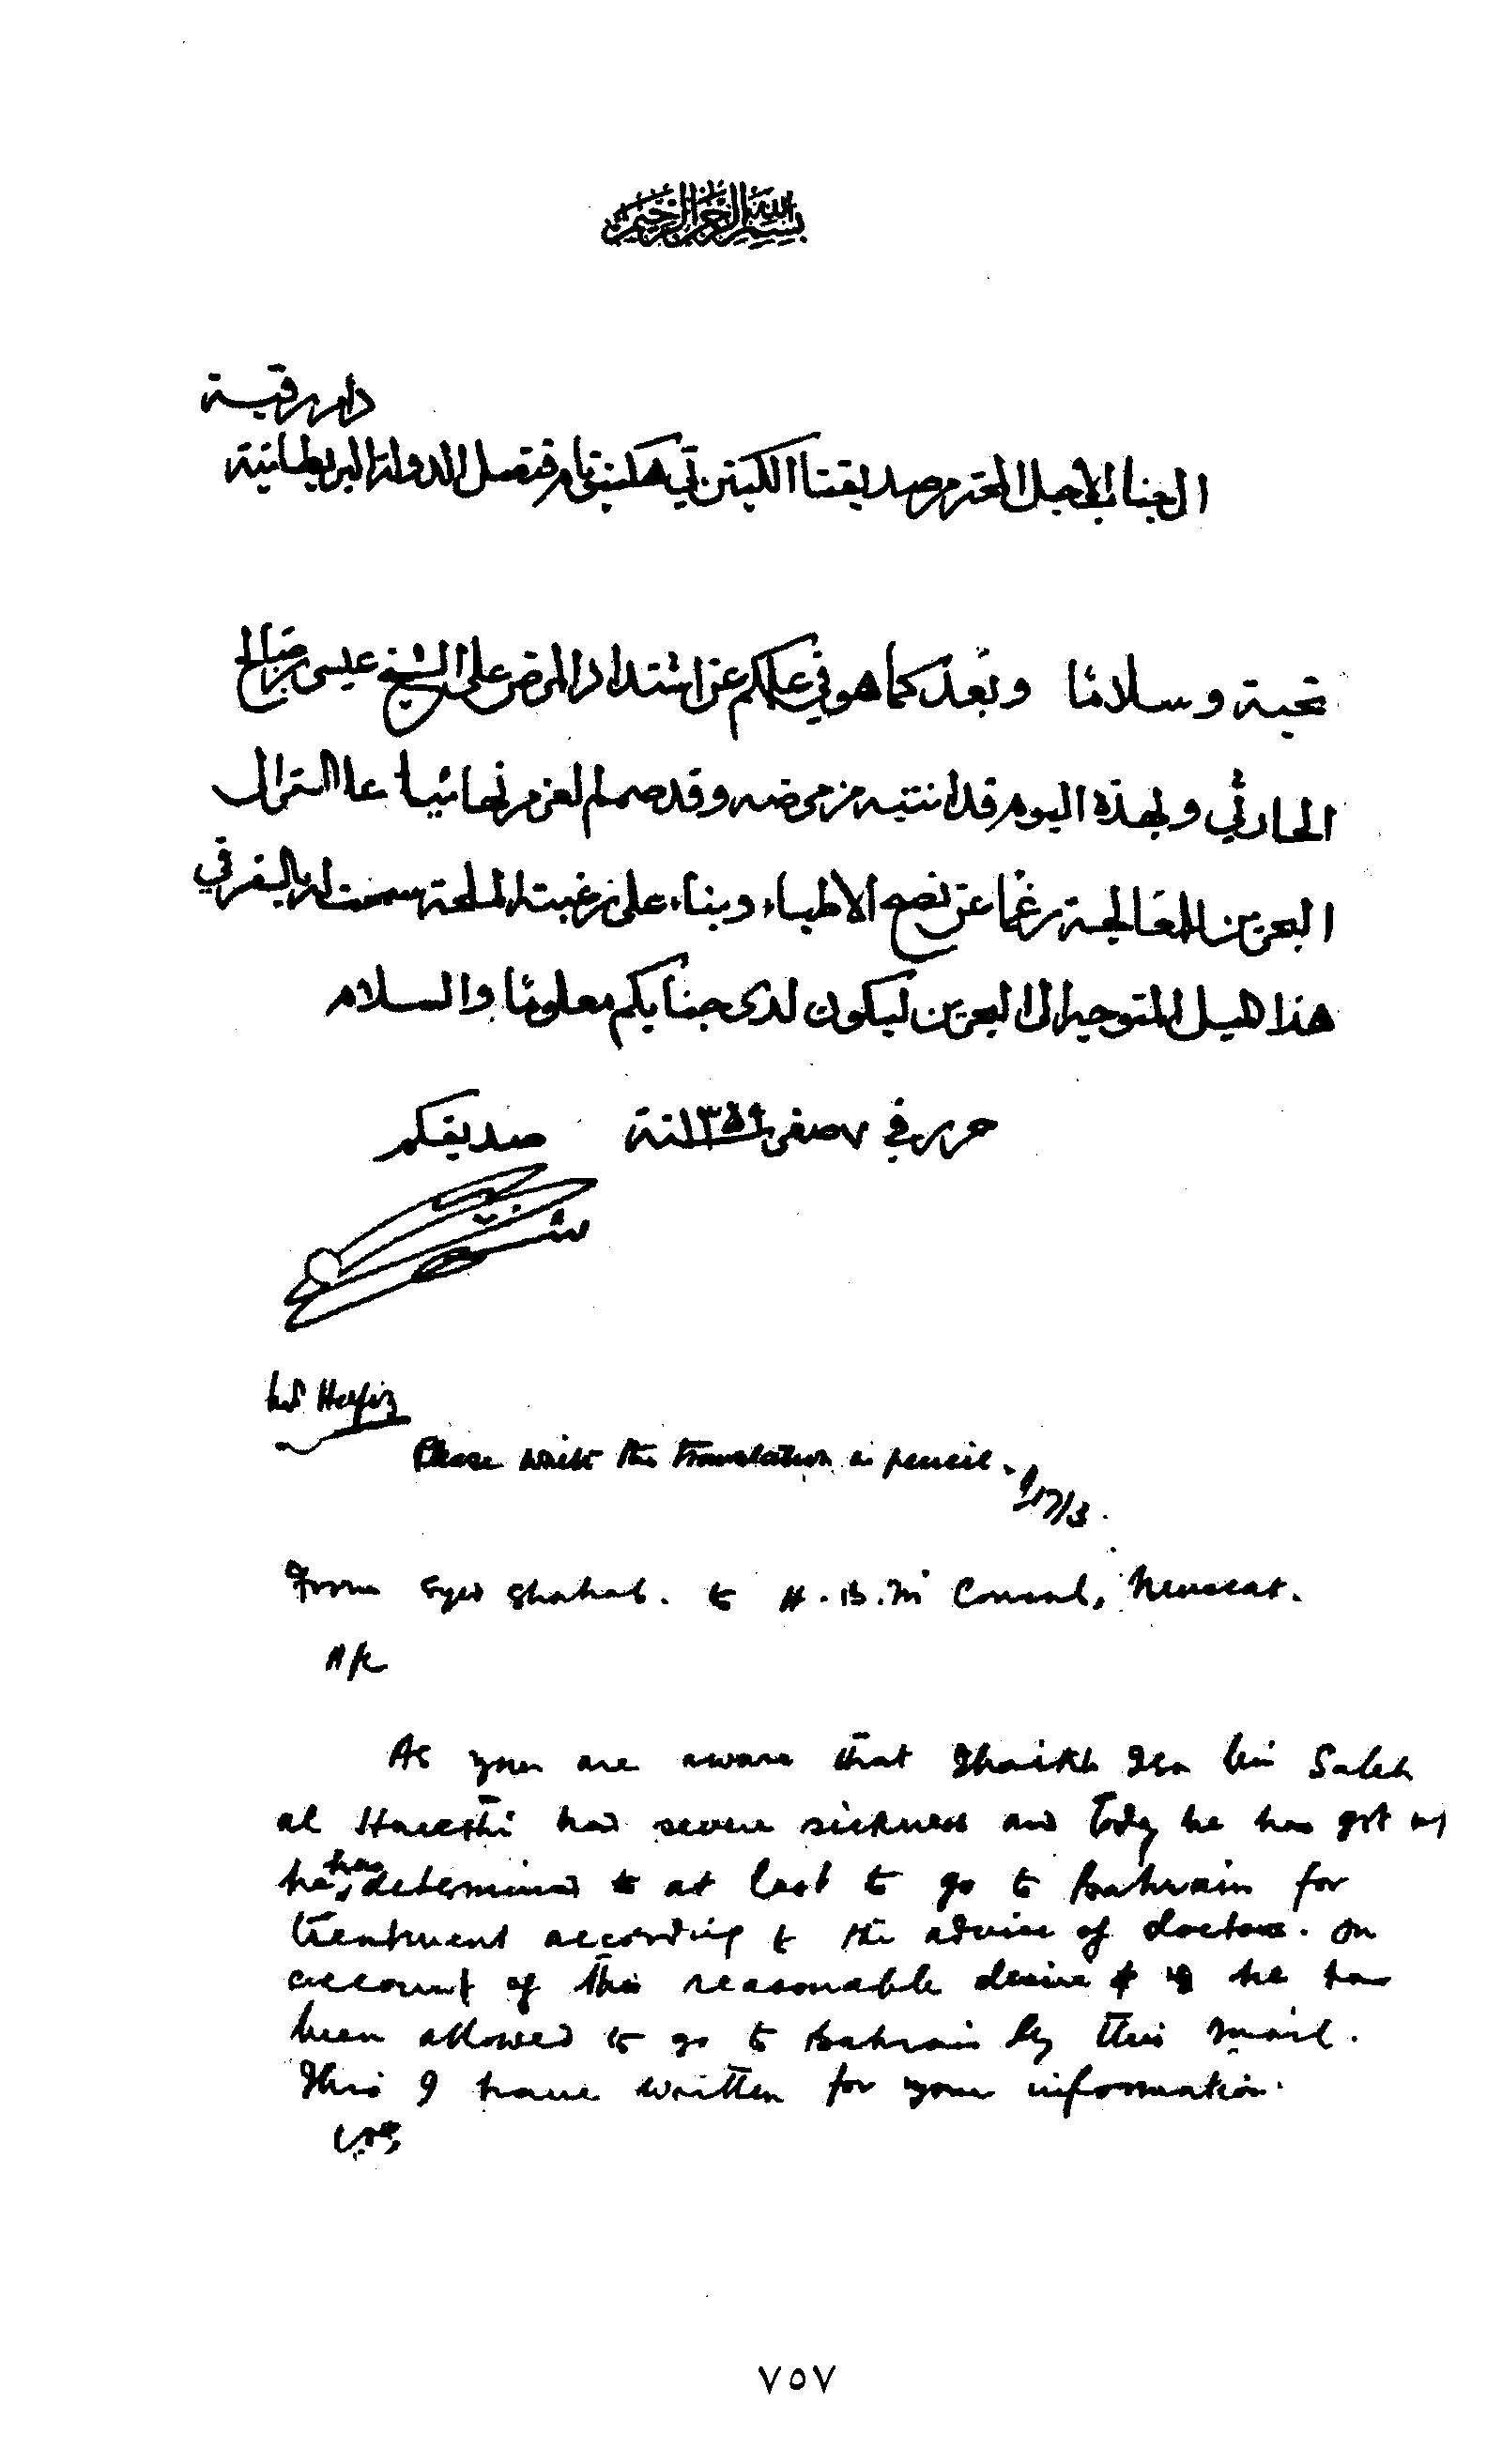 بسم الله الرحمن الرحيم
دام رقيه
الجناب الاجل المحترم صديقنا الكبتن تي هكنبتام قنصل الدولة البريطانية
تحية وسلامًا وبعد كما هو في علمكم عن اشتداد المرض على الشيخ عيسى بن صالح
الحارثي ولهذه اليوم قد انتبه من مرضه وقد صمم العزم نهائيا على النزال
البحرين للمعالجة رغما عن نصح الاطباء وبناء على رغبته الملحة سمحت له بالسفر في
هذا الميل المتوجه الى البحرين ليكون لدى جنابكم معلومًا والسلام
حرر في ٧ صفر سنة ١٣٥٩ صديقكم
Hafiz
Please write the translation in pencil.
17/3.
From Syed Shahab. to H.B.M's Consul, Muscat.
A/C
As you are aware that Shaikh Isa bin Saleh
al Harethi had severe sickness and today he has got up
he has determined to at last to go to Bahrain for
treatment according to the advice of doctors. On
account of this reasonable desire he has
been allowed to go to Bahrain by this mail.
This I have written for your information.
٧٥٧